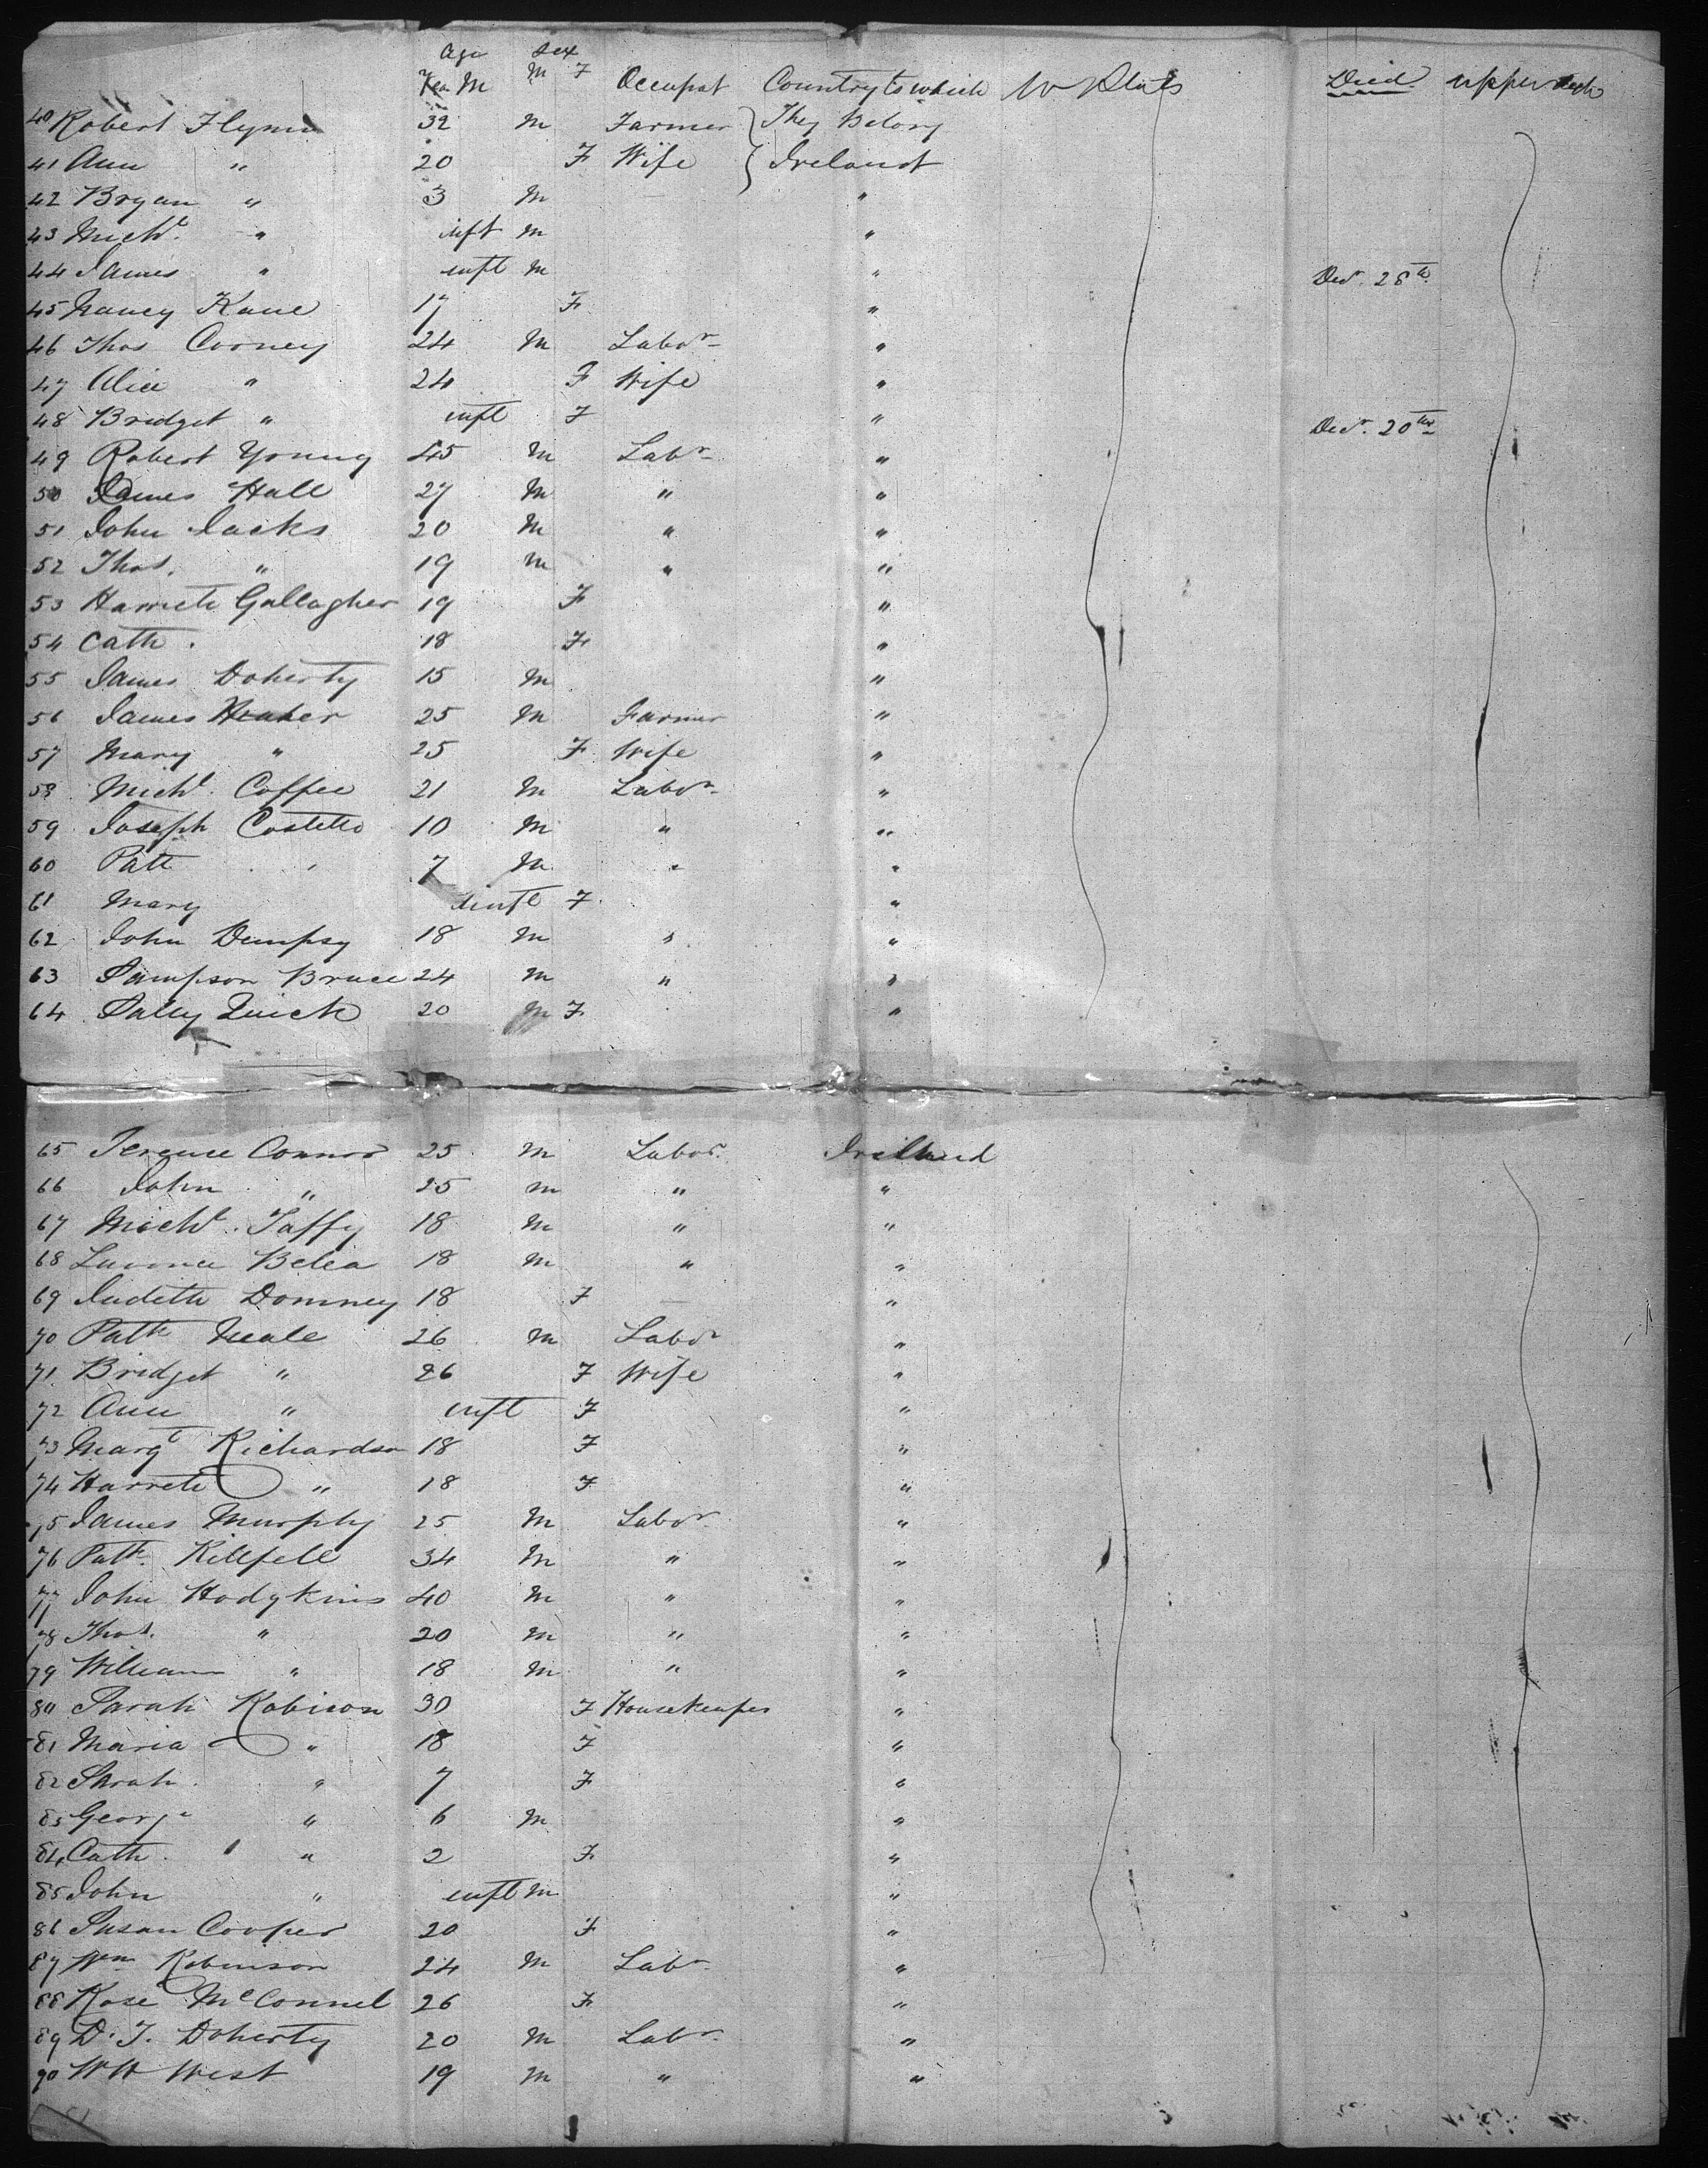 Age Sex
Yea M M F Occupat Country to which U States Died upper deck
40 Robert Flynn 32 M Farmer } They Belong
41 Ann " 20 F Wife } Ireland
42 Bryan " 3 M "
43 Michl. " inft M "
44 James " inft M " Decr. 28th
45 Nancy Kane 17 F "
46 Thos Cooney 24 M Labor "
47 Alice " 24 F Wife "
48 Bridget " inft F " Decr. 20th
49 Robert Young 45 M Labr "
50 James Hall 27 M " "
51 John Jacks 20 M " "
52 Thos. " 19 M " "
53 Harriete Gallagher 19 F "
54 Cath. 18 F "
55 James Doherty 15 M "
56 James 25 M Farmer "
57 Mary " 25 F Wife "
58 Michl. Coffee 21 M Labor "
59 Joseph Costello 10 M " "
60 Patt " 7 M " "
61 Mary inft F "
62 John Dempsy 18 M " "
63 Sampson Bruce 24 M " "
64 Sally Quick 20 M F "
65 Terence Connor 25 M Labor. Ireland
66 John " 25 M " "
67 Michl. Taffy 18 M " "
68 Belea 18 M " "
69 Judith Domney 18 F "
70 Patk Neale 26 M Labor "
71 Bridget " 26 F Wife "
72 Ann " inft F "
73 Margt Richardson 18 F "
74 Harrete " 18 F "
75 James Murphy 25 M Labor "
76 Patk. Killfell 34 M " "
77 John Hodgkins 40 M " "
78 Thos. " 20 M " "
79 William " 18 M " "
80 Sarah Robison 30 F Housekeeper "
81 Maria " 18 F "
82 Sarah " 7 F "
83 George " 6 M "
84 Cath. " 2 F "
85 John " inft M "
86 Susan Cooper 20 F "
87 Wm Robinson 24 M Labr "
88 Rose McConnel 26 F "
89 D. T. Doherty 20 M Labr "
90 WW West 19 M " "